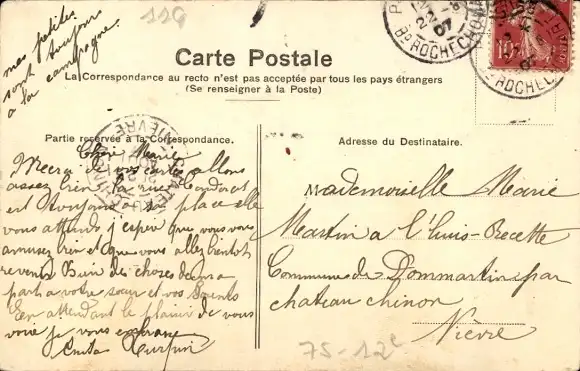 119
mes petites
sont toujour
a la campagne
Carte Postale
La Correspondance au recto n'est pas acceptée par tous les pays étrangers
(Se renseigner à la Poste)
Bd ROCHECHOUART
07
10
Partie reservée à la Correspondance.
Chère Marie
Merci de vos cartes allons
assez bien la rue Condorcet
est toujours a sa place elle
vous attend j'espère que vous vous
amusez bien et que vous allez bientot
revenir Bien des choses de ma
part a votre sœur et vos parents
En attendant le plaisir de vous
voir je vous embrasse
NIEVRE
Adresse du Destinataire.
Mademoiselle Marie
Martin a l'huis-Recette
Commune de Dommartin par
chateau chinon
Nièvre
75-12e